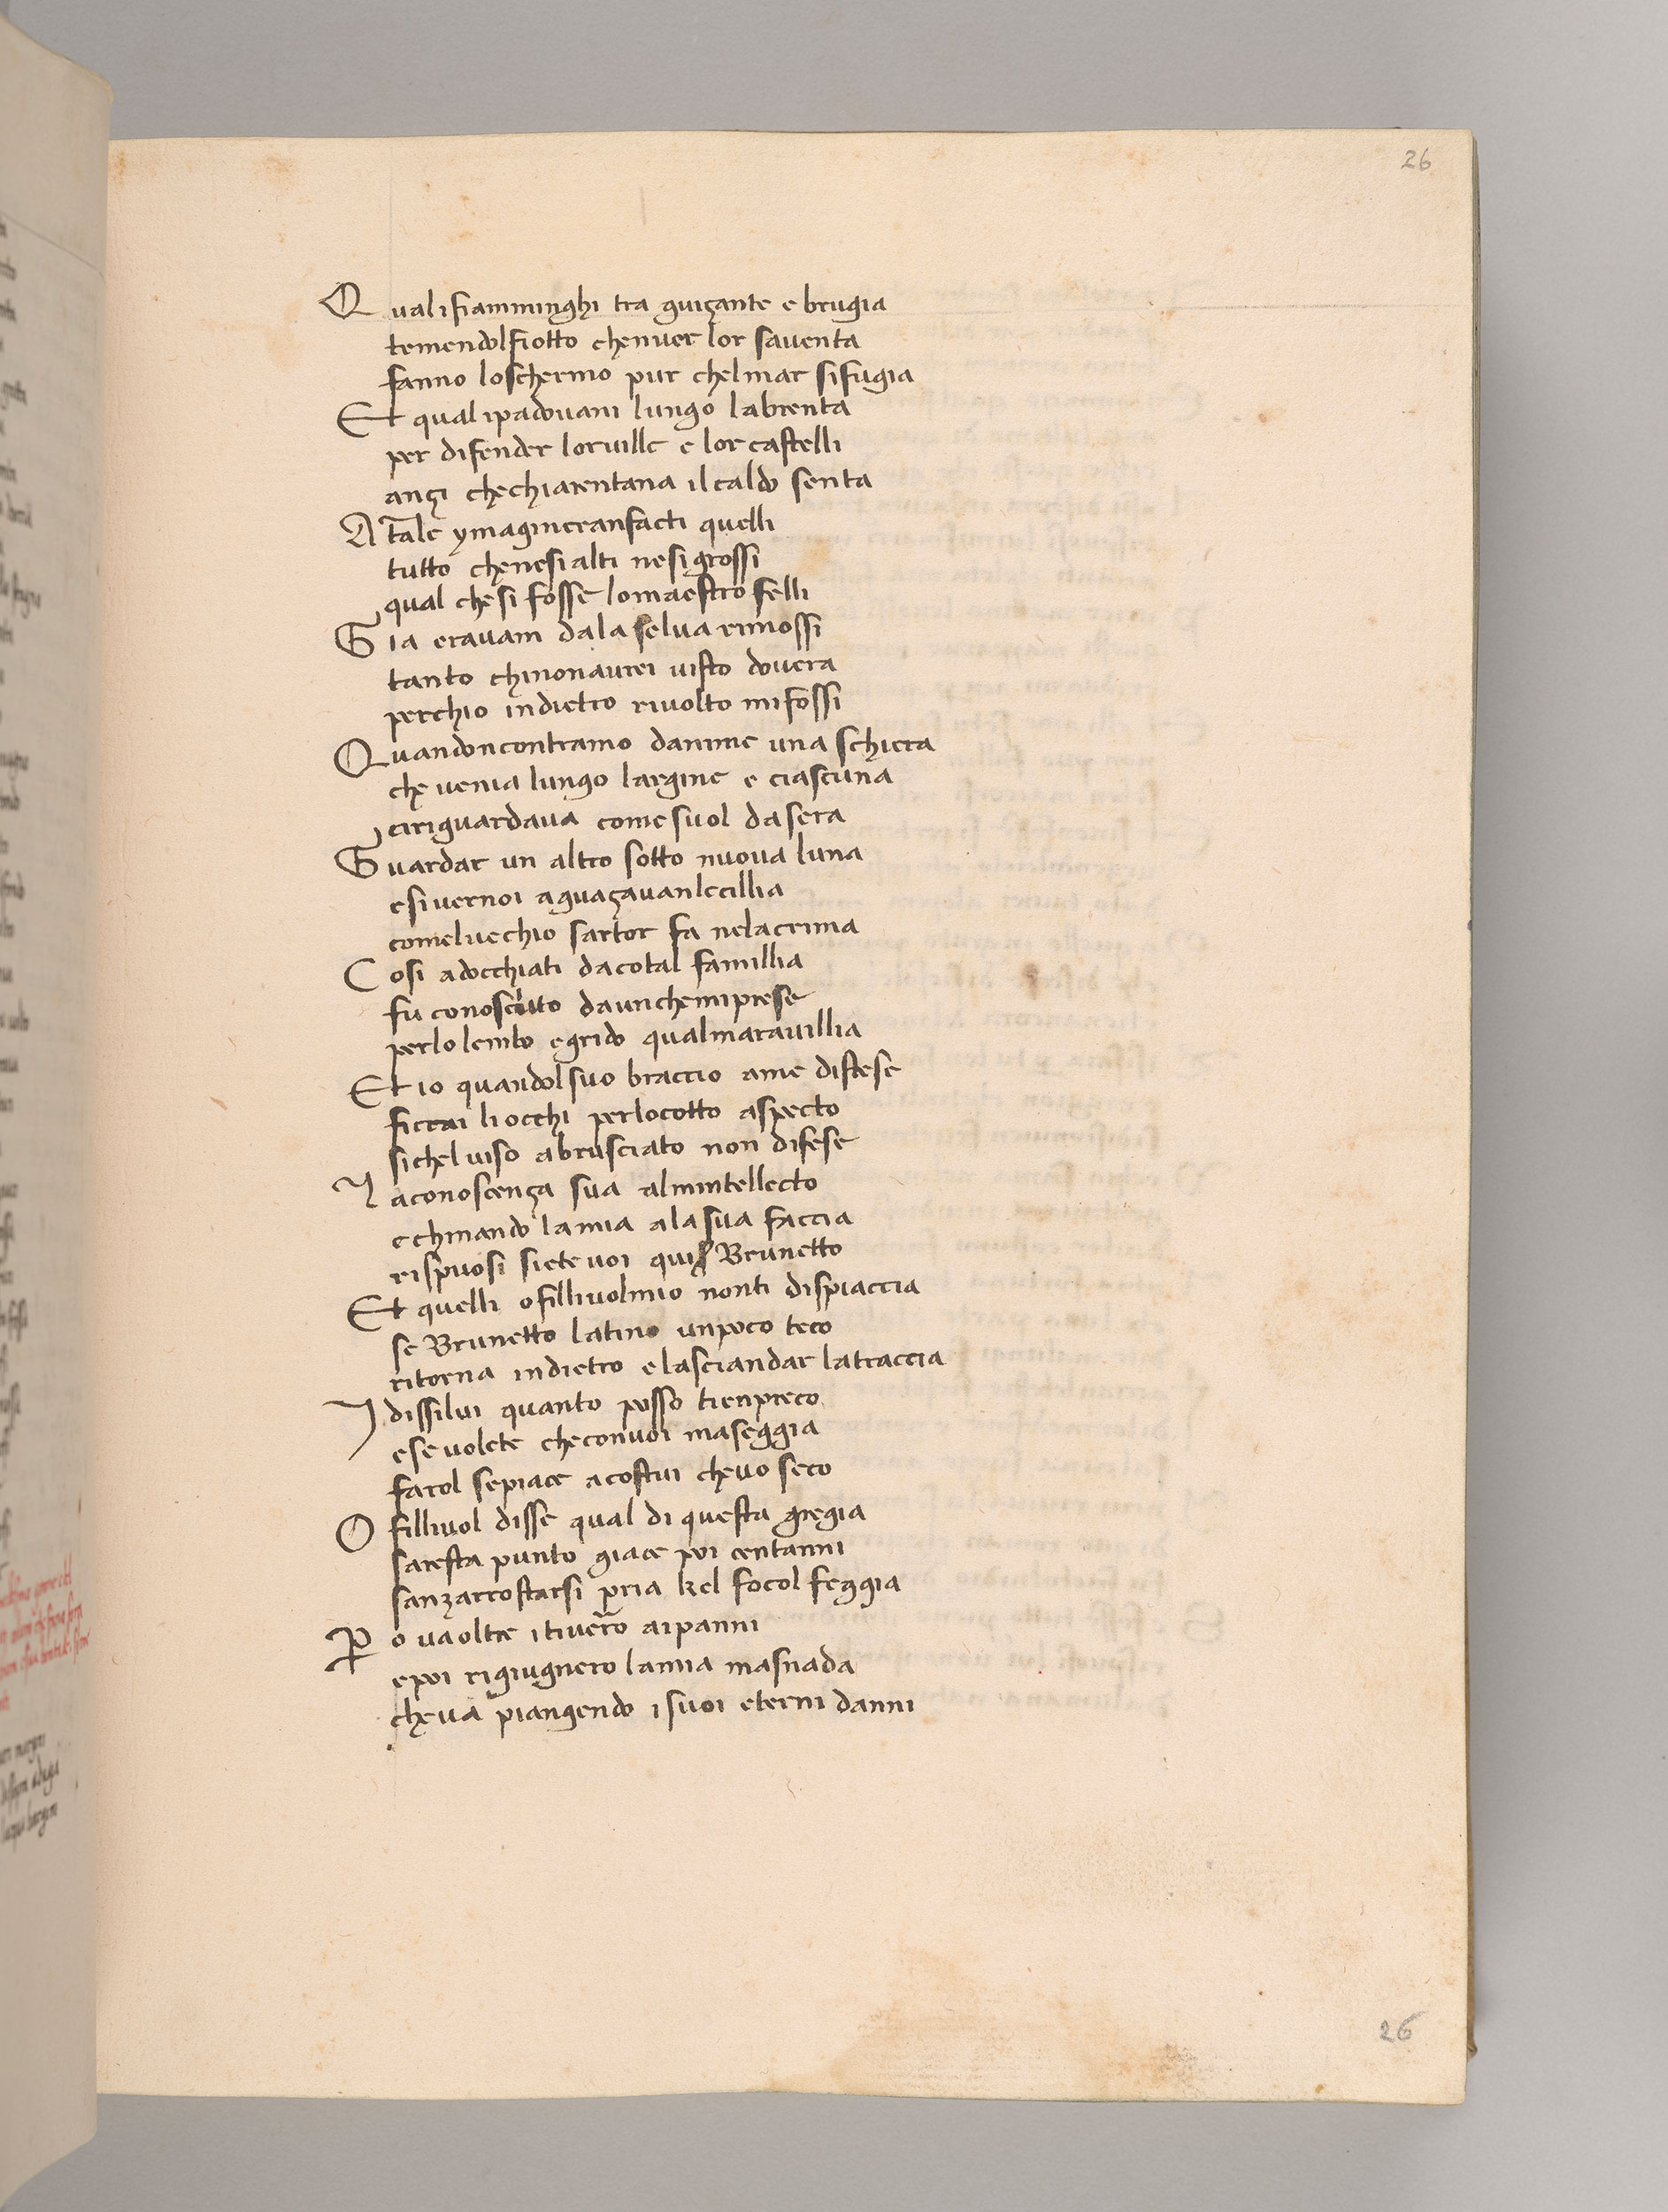 26
Quali fiamminghi tra guiçante e brugia
temendol fiotto chenver lor saventa
fanno loschermo pur chelmar sifugia
Et qual ipadovani lungo labrenta
per difender lorville e lor castelli
ançi chechiarentana il caldo senta
Atale ymagineranfacti quelli
tutto chenesi alti nesi grossi
qual chesi fosse lomaestro felli
Gia eravam dala selva rimossi
tanto chinonaurei visto dovera
perchio indietro rivolto mifossi
Quandoncontramo danime una schiera
che venia lungo largine e ciascuna
ciriguardava come suol dasera
Guardar un altro sotto nuova luna
esivernoi aguaçavanlecillia
comelvechio sartor fa nelacruna
Cosi adocchiati dacotal famillia
fu conosciuto daunchemiprese
perlo lembo egrido qualmaravillia
Et io quandolsuo braccio ame distese
ficcai liocchi perlocotto aspecto
sichelviso abrusciato non difese
Laconoscença sua almintellecto
echinando lamia alasua faccia
rispuosi siete voi qui Brunetto
Et quelli ofillivolmio nonti dispiaccia
se Brunetto latino unpoco teco
ritorna indietro elasciandar latraccia
I dissilui quanto posso tienpreco
ese volete checonvoi maseggia
farol sepiace acostui chevo seco
O fillivol disse qual di questa gregia
saresta punto giace poi centanni
sanzarrostarsi pria kel focol feggia
Pero va oltre itiverro aipanni
epoi rigiugnero lamia masnada
cheva piangendo isuoi eterni danni
26